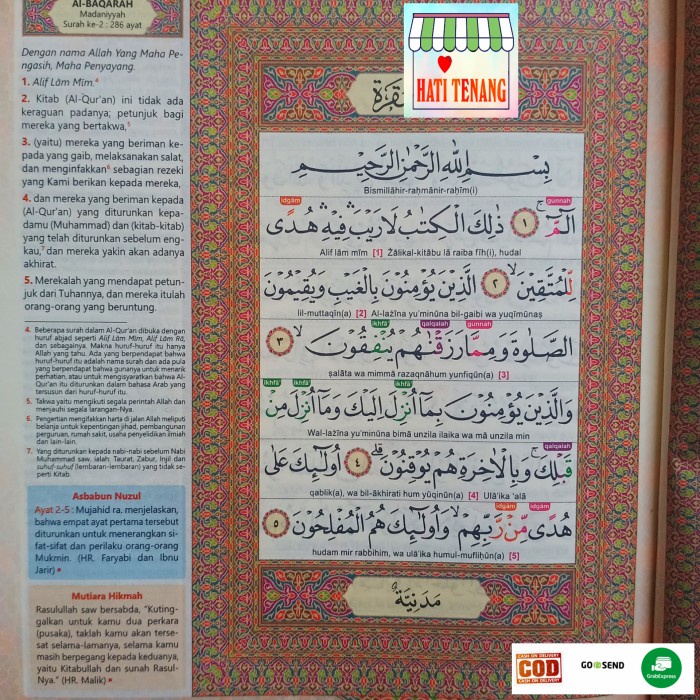 Al-BAQARAH
Madaniyyah
Surah ke-2 : 286 ayat
Dengan nama Allah Yang Maha Pe-
ngasih, Maha Penyayang.
1. Alif Lām Mīm.⁴
2. Kitab (Al-Qur'an) ini tidak ada
keraguan padanya; petunjuk bagi
mereka yang bertakwa,⁵
3. (yaitu) mereka yang beriman ke-
pada yang gaib, melaksanakan salat,
dan menginfakkan⁶ sebagian rezeki
yang Kami berikan kepada mereka,
4. dan mereka yang beriman kepada
(Al-Qur'an) yang diturunkan kepa-
damu (Muhammad) dan (kitab-kitab)
yang telah diturunkan sebelum eng-
kau,⁷ dan mereka yakin akan adanya
akhirat.
5. Merekalah yang mendapat petun-
juk dari Tuhannya, dan mereka itulah
orang-orang yang beruntung.
4. Beberapa surah dalam Al-Qur'an dibuka dengan
huruf abjad seperti Alif Lām Mīm, Alif Lām Rā,
dan sebagainya. Makna huruf-huruf itu hanya
Allah yang tahu. Ada yang berpendapat bahwa
huruf-huruf itu adalah nama surah dan ada pula
yang berpendapat bahwa gunanya untuk menarik
perhatian, atau untuk mengisyaratkan bahwa Al-
Qur'an itu diturunkan dalam bahasa Arab yang
tersusun dari huruf-huruf itu.
5. Takwa yaitu mengikuti segala perintah Allah dan
menjauhi segala larangan-Nya.
6. Pengertian mengifakkan harta di jalan Allah meliputi
belanja untuk kepentingan jihad, pembangunan
perguruan, rumah sakit, usaha penyelidikan ilmiah
dan lain-lain.
7. Yang diturunkan kepada nabi-nabi sebelum Nabi
Muhammad saw. ialah: Taurat, Zabur, Injil dan
suhuf-suhuf (lembaran-lembaran) yang tidak se-
perti Kitab.
Asbabun Nuzul
Ayat 2-5 : Mujahid ra. menjelaskan,
bahwa empat ayat pertama tersebut
diturunkan untuk menerangkan si-
fat-sifat dan perilaku orang-orang
Mukmin. (HR. Faryabi dan Ibnu
Jarir)
Mutiara Hikmah
Rasulullah saw bersabda, "Kuting-
galkan untuk kamu dua perkara
(pusaka), taklah kamu akan terse-
sat selama-lamanya, selama kamu
masih berpegang kepada keduanya,
yaitu Kitabullah dan sunah Rasul-
Nya." (HR. Malik)
HATI TENANG
بِسْمِ اللّٰهِ الرَّحْمٰنِ الرَّحِيْمِ
Bismillāhir-raḥmānir-raḥīm(i)
idgam gunnah
الۤمّۤ ۚ ١ ذٰلِكَ الْكِتٰبُ لَا رَيْبَ ۛ فِيْهِ ۛ هُدًى
Alif lām mīm [1] Żālikal-kitābu lā raiba fīh(i), hudal
لِّلْمُتَّقِيْنَ ۙ ٢ الَّذِيْنَ يُؤْمِنُوْنَ بِالْغَيْبِ وَيُقِيْمُوْنَ
lil-muttaqīn(a) [2] Al-lażīna yu'minūna bil-gaibi wa yuqīmūnaṣ
ikhfa qalqalah gunnah
الصَّلٰوةَ وَمِمَّا رَزَقْنٰهُمْ يُنْفِقُوْنَ ۙ ٣
ṣalāta wa mimmā razaqnāhum yunfiqūn(a) [3]
ikhfa ikhfa ikhfa
وَالَّذِيْنَ يُؤْمِنُوْنَ بِمَآ اُنْزِلَ اِلَيْكَ وَمَآ اُنْزِلَ مِنْ
Wal-lażīna yu'minūna bimā unzila ilaika wa mā unzila min
qalqalah
قَبْلِكَ ۚ وَبِالْاٰخِرَةِ هُمْ يُوْقِنُوْنَ ۗ ٤ اُولٰۤىِٕكَ عَلٰى
qablik(a), wa bil-ākhirati hum yūqinūn(a) [4] Ulā'ika 'alā
idgam idgam
هُدًى مِّنْ رَّبِّهِمْ ۙ وَاُولٰۤىِٕكَ هُمُ الْمُفْلِحُوْنَ ٥
hudam mir rabbihim, wa ulā'ika humul-mufliḥūn(a) [5]
مَدَنِيَّةٌ
CASH ON DELIVERY
COD
CASH ON DELIVERY
GO SEND
GrabExpress